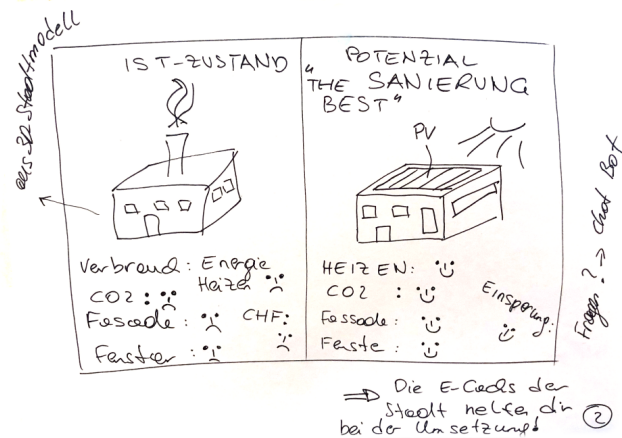 aus 3D Stadtmodell
IST-ZUSTAND
Verbrauch: Energie
Heizen
CO2 :
Fassade :
CHF:
Fenster :
POTENZIAL
"THE SANIERUNG
BEST"
PV
HEIZEN:
CO2 :
Fassade :
Fenste :
Einsparung:
Fragen? → Chat Bot
⇒ Die E-Coachs der
Stadt helfen dir
bei der Umsetzung!
2